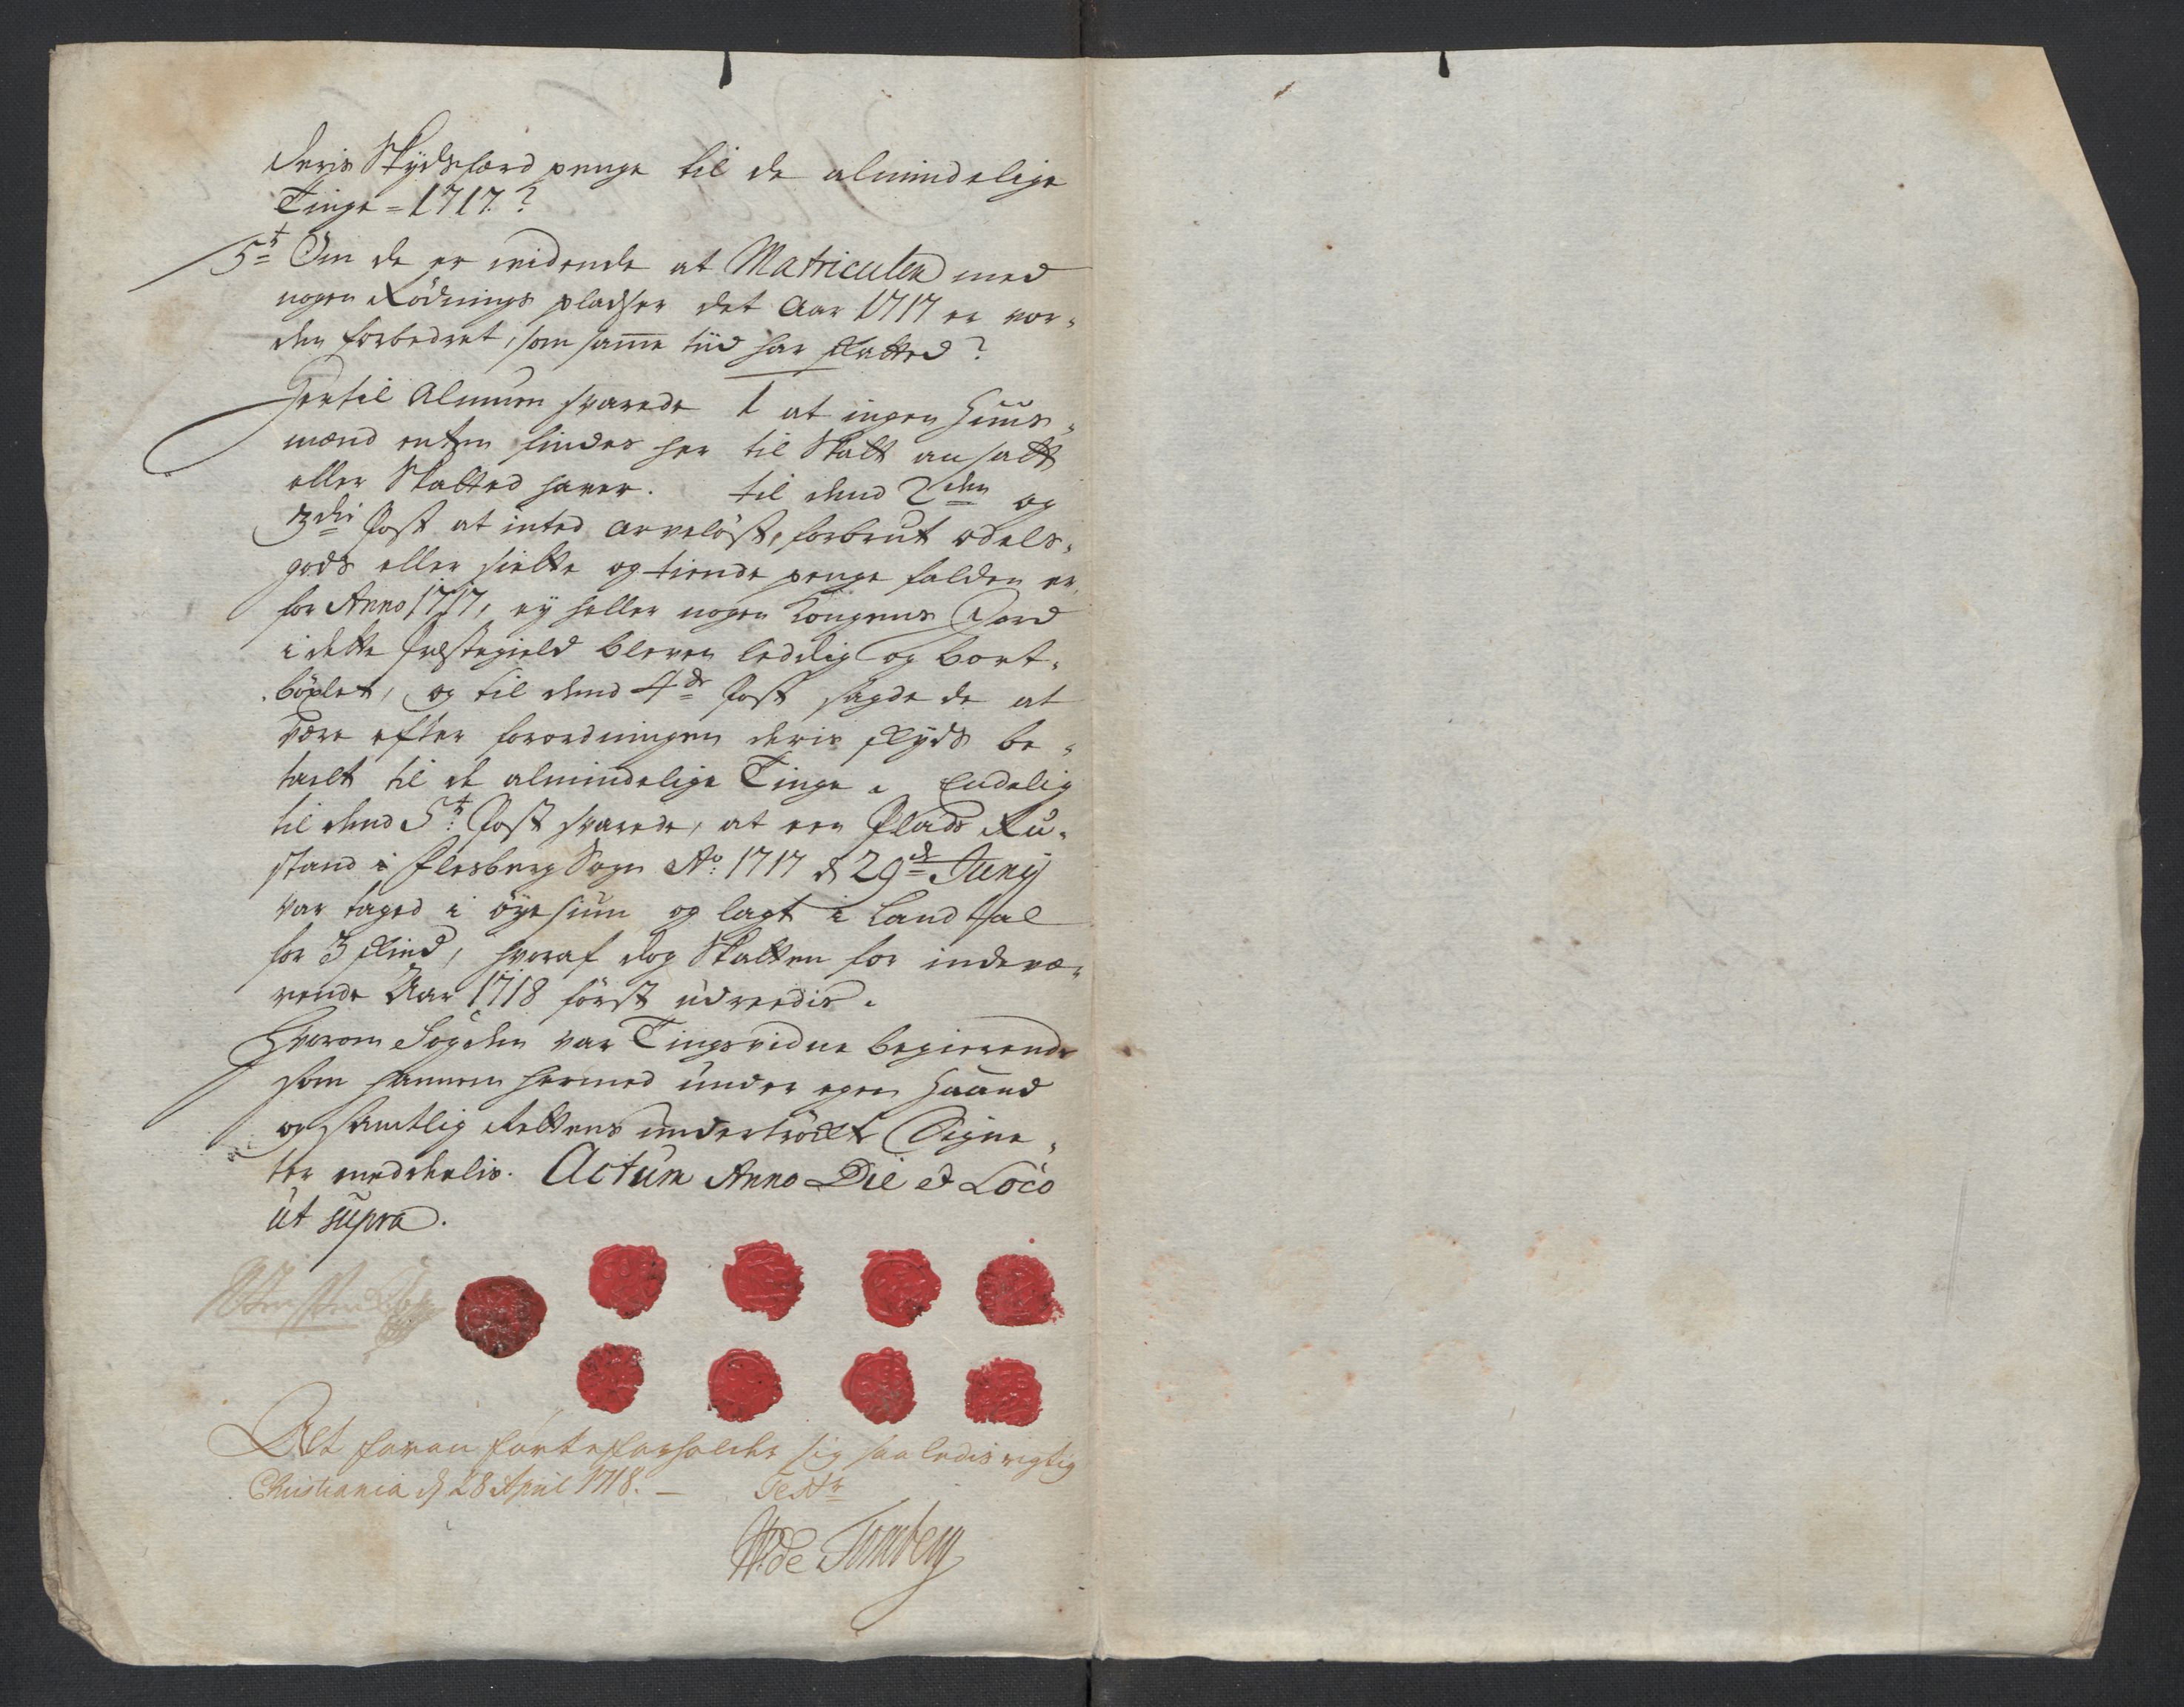 deris Skydsfærd penge til de almindelige
Tinge = 1717.?
5t Om de er vidende at Matriculen med
nogen Rödnings pladser det Aar 1717 er vor-
den forbedret, som samme tiid har skatted?
Hertil Almuen svarede 1 at ingen Huus-
mænd enten findes her til Skatt ansatt
eller Skatted haver. til dend 2den og
3die Post at inted arvelöst, forbrut odels-
gods eller siette og tiende penge falden er
for Anno 1717, ey heller nogen Kongens Jord
i dette Præstegield bleven leedig og bort-
böxlet, og til dend 4de Post sagde de at
være efter forordningen deris skyds be-
talt til de almindelige Tinge. Endelig
til dend 5t Post svarede, at een Plads Ru-
stand i Flesberg Sogn Ao: 1717 d 29de Junij
var taged i öyesiun og lagt i Landtal
for 3 skind, hvoraf dog Skatten for indevæ-
rende Aar 1718 först udreedis.
Hvorom Fogden var Tingsvidne begierende
som hannem hermed under egen Haand
og samtlig Rettens undertröcht Signe-
ter meddeelis. Actum Anno Die et Loco
ut supra.
Alt foran förte forholder sig saaledis rigtig
Christiania d 28 April 1718. Testr
W de Tonsberg